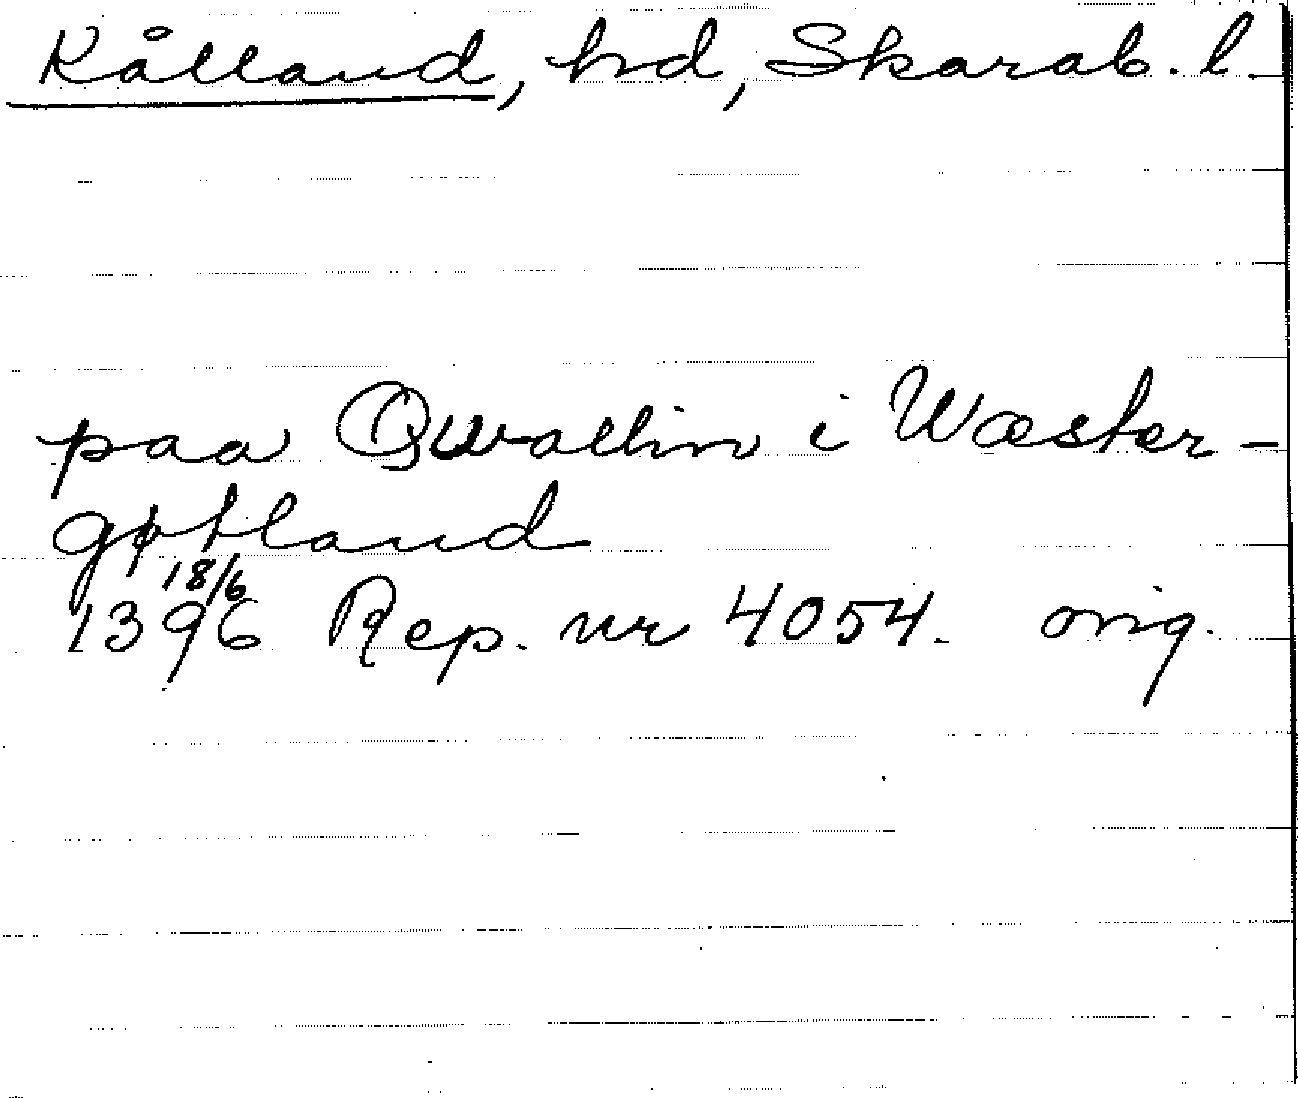 Kålland, hd, Skarab. l.
paa Qwallin i Wæster-
gøtland
18/6
1396 Rep. nr 4054. orig.